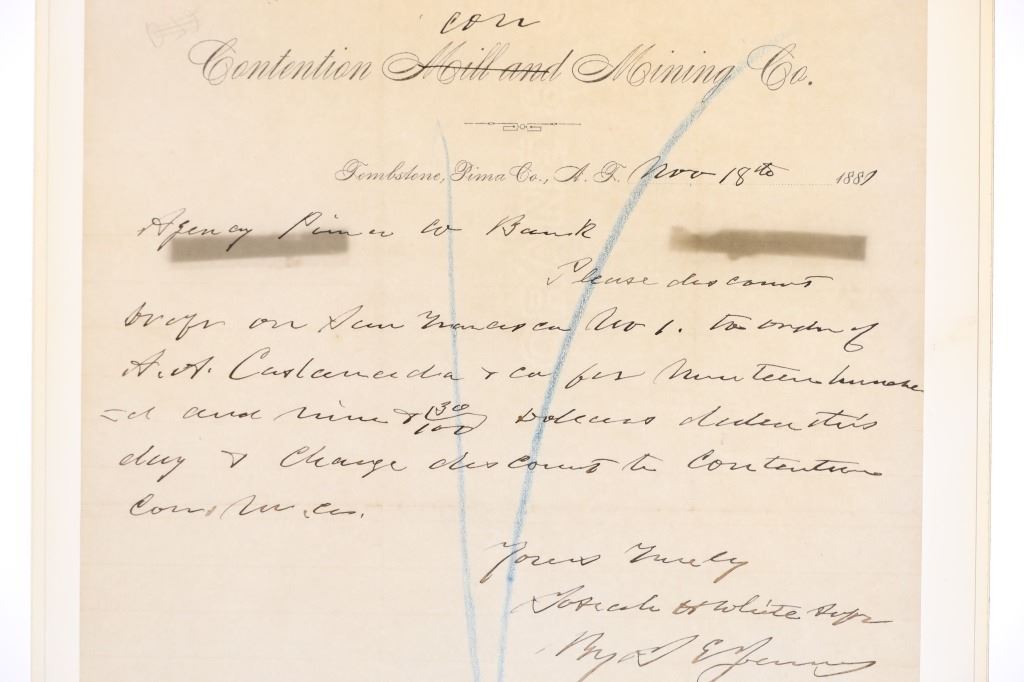 con
Contention Mill and Mining Co.
Tombstone, Pima Co., A. T. Nov 18th 1881
Agency Pima Co Bank
Please discount
draft on San Francisco No 1. to order of
A. A. Castaneda & co for Nineteen hundre
=d and nine & 30/100 Dollars dated this
day & Charge discount to Contention
Con. M. co.
Yours Truly
Josiah H White Supt
By S E